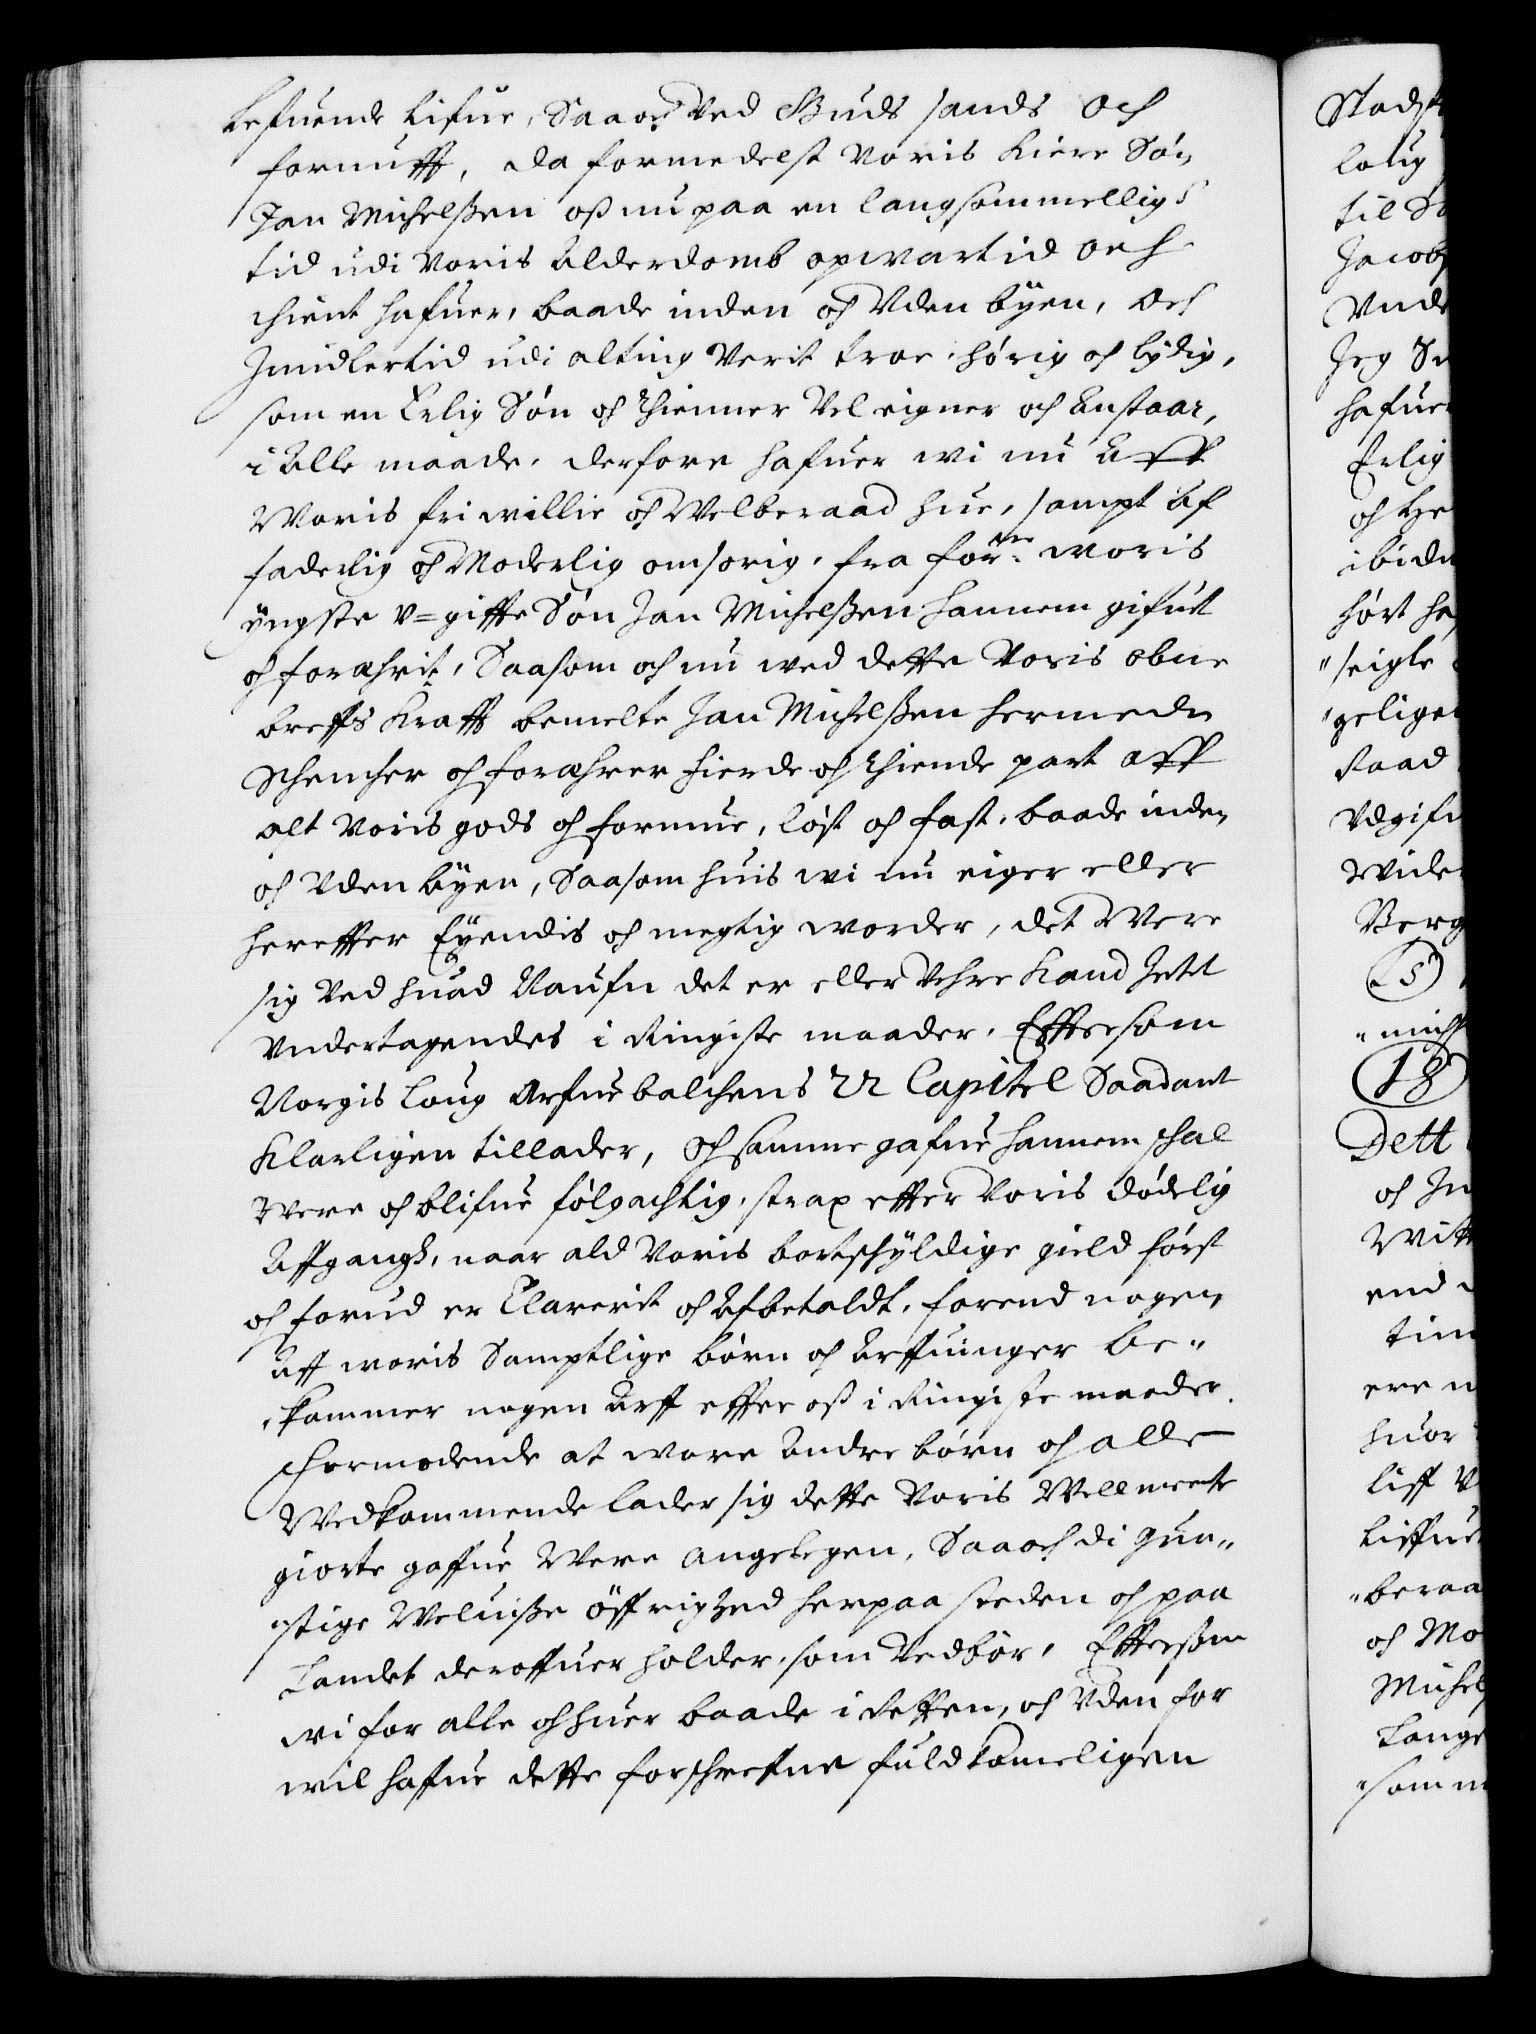 Lefuende Lifue, Saa och Ved Suds sands och
fornufft, da formedelst Voris Kiere Søn,
Jan Michelßen oß nu paa en langsommelligs
tid udi Voris Alderdomb opwartid och
thient hafuer, baade inden och Vden byen, och
Imidlertid udi alting Verit troe, hørig och lydig,
som en Erlig Søn och Thienner Vel eigner och Anstaar,
i Alle maade. derfore hafuer wi nu Aff
Woris fri willie och Velberaad hue, sampt af
faderlig och Moderlig omsorig, fra forne woris
yngste V=giffte Søn Jan Michelßen Hannem gifuet
och forærit, Saasom och nu wed dette Voris obne
breffs Krafft bemelte Jan Michelßen hermede
Schencher och forærer fierde och Thiende part aff
alt Voris gods och formue, løst och fast, baade inden
och Vden byen, Saasom huis wi nu eiger eller
hereffter Eyendis och megtig worder, det Were
sig Ved huad Naufn det er eller Vehre Kand Intet
Vndertagendes i Ringiste maader. Effttersom
Norgis Loug Arfue balchens 22 Capitel Saadant
Klarligen tillader, och samme gafue hannem schal
Were och blifue følgachtig, strax effter Voris dødelig
Affgangh, naar ald Voris bortschyldige gield først
och forud er Clarerit och Afbetaldt, forend nogen
Aff woris Samptlige børn och Arffuinger be„
„kommer nogen Arff effter oß i Ringiste maader.
Formodende at wore Andre børn och alle
Vedkommende lader sig dette Voris Wellmente
giorte gaffue Were Angelegen, Saa och di gun„
„stige Weluiße øffrighed her paa steden och paa
Landet deroffuer holder, som Vedbør, Efftersom
wi for alle och huer baade i Retten, och Vden for
wil hafue dette forschrefne fuldkommeligen
Stadst
loug
til
Jacobs
Vnde
Jeg
hafuer
Erlig
och
ibidn
hørt
„seigle
„geligen
Raad
Vdgifu
Wider
Berg
5
„mich
18
Dett
och
Witt
end
tim
ere
huor
liff
Liffue
„beraa
och Mo
Michels
Lange
„som